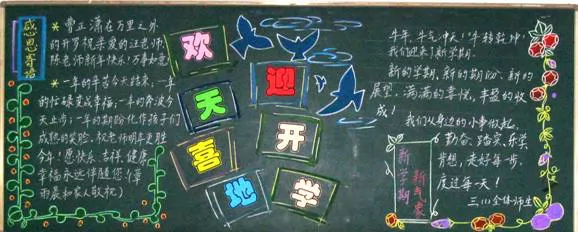 感恩寄语
*曹正潇在万里之外
的开罗祝亲爱的汪老师、
陈老师新年快乐!万事如意!
*一年的辛苦今天结束;一年
的忙碌变成幸福;一年的奔波今
天止步;一年的期盼化作孩子们
成熟的笑脸。祝老师明年更胜
今年!愿快乐、吉祥、健康、
幸福永远伴随您!(李
雨晨和家人敬祝)
欢
天
喜
地
迎
开
学
牛年,牛气冲天!牛转乾坤
我们迎来了新学期。
新的学期,新的期盼、新的
展望,满满的喜悦,丰盈的收
成!
我们从身边的小事做起,
勤奋、踏实、乐学、
肯想,走好每一步,
度过每一天!
三(1)全体师生
新学期
新气象